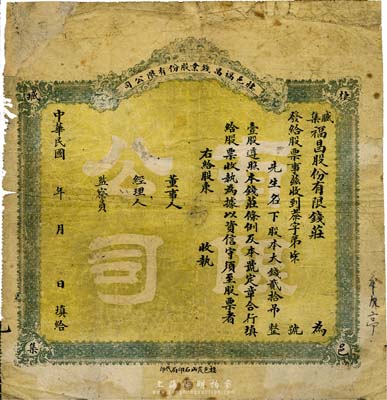 桂邑福昌錢業股份有限公司
桂
城
邑
集
有限
公司
城集福昌股份有限錢莊 為
發給股票事茲收到茶字第 號
先生名下股本大錢貳拾吊整
壹股遵照本錢莊條例及本號定章合行填
給股票收執為據以資信守須至股票者
右給股東 收執
董事人
經理人
監察員
中華民國 年 月 日 填給